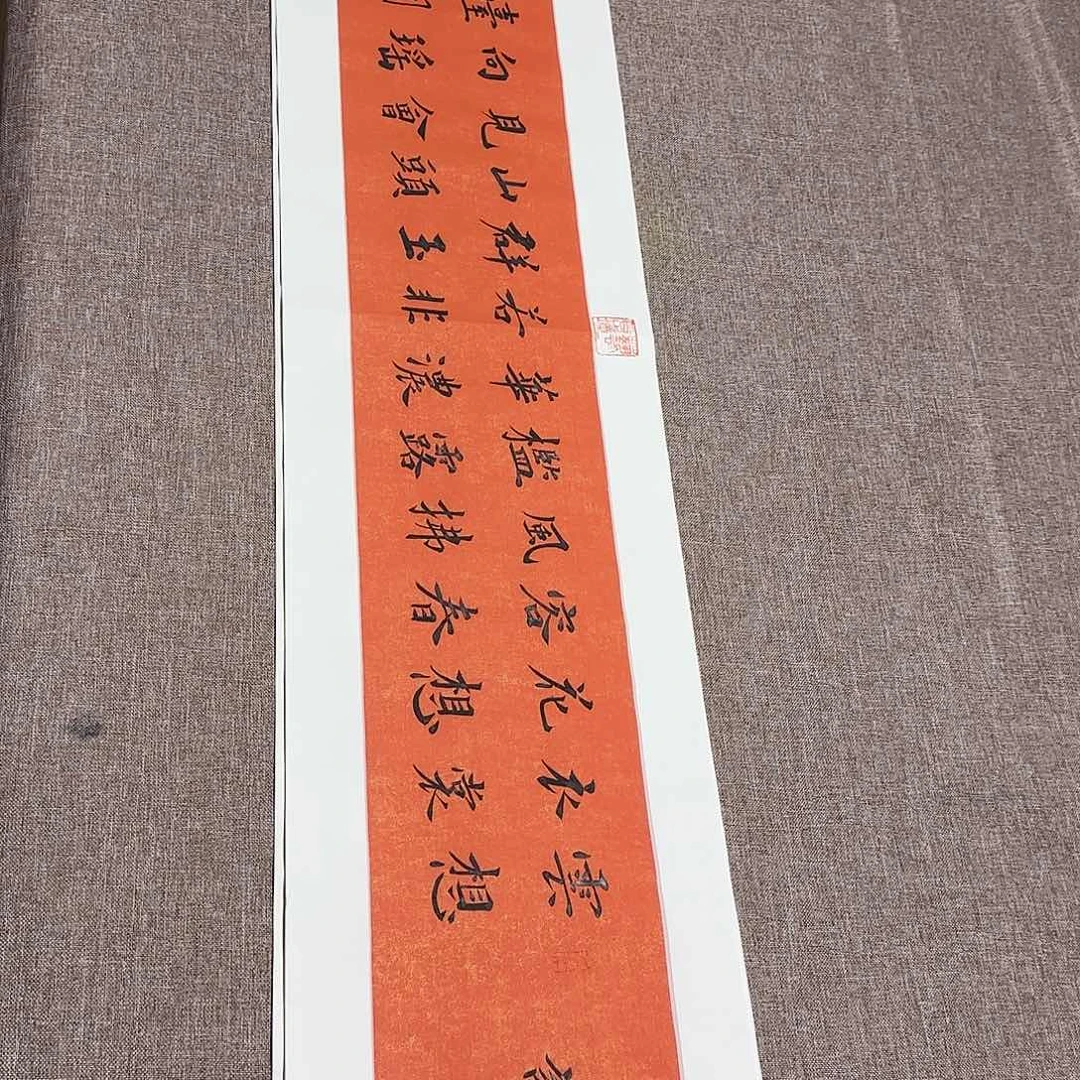 雲想
衣裳
花想
容春
風拂
檻露
華濃
若非
群玉
山頭
見會
向瑤
臺